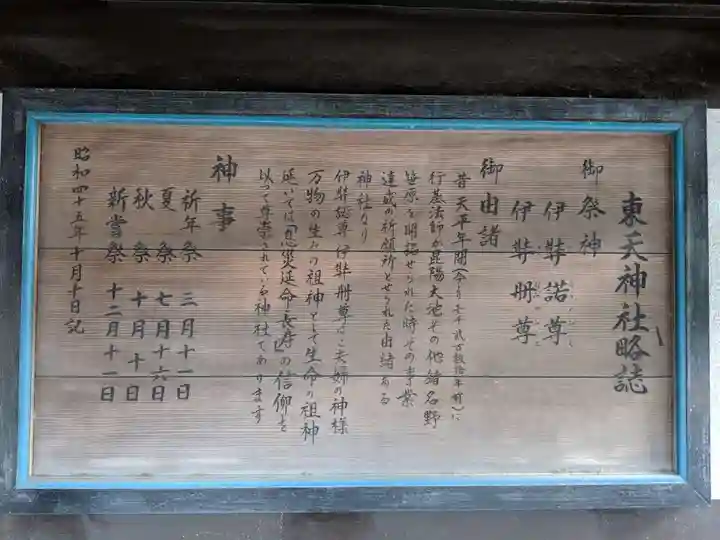 東天神社略誌
御祭神
伊弉諾尊
伊弉册尊
御由諸
昔天平年間(今より壱千弐百数拾年前)に
行基法師が昆陽大池その他猪名野
笹原を開拓せられた時その事業
達成の祈願所とせられた由緒ある
神社なり
伊弉諾尊 伊弉册尊はご夫婦の神様
万物の生みの祖神として生命の祖神
延いては「息災延命・長寿」の信仰を
以って尊崇されている神社であります
神事
祈年祭 三月十一日
夏祭 七月十六日
秋祭 十月十日
新嘗祭 十二月十一日
昭和四十五年十月十日記